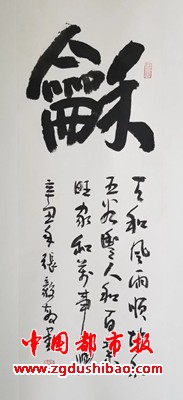 龢
天和風雨順地和
五谷豐人和百業
旺家和萬事興
辛丑年張毅
中國都市报
www.zgdushibao.com